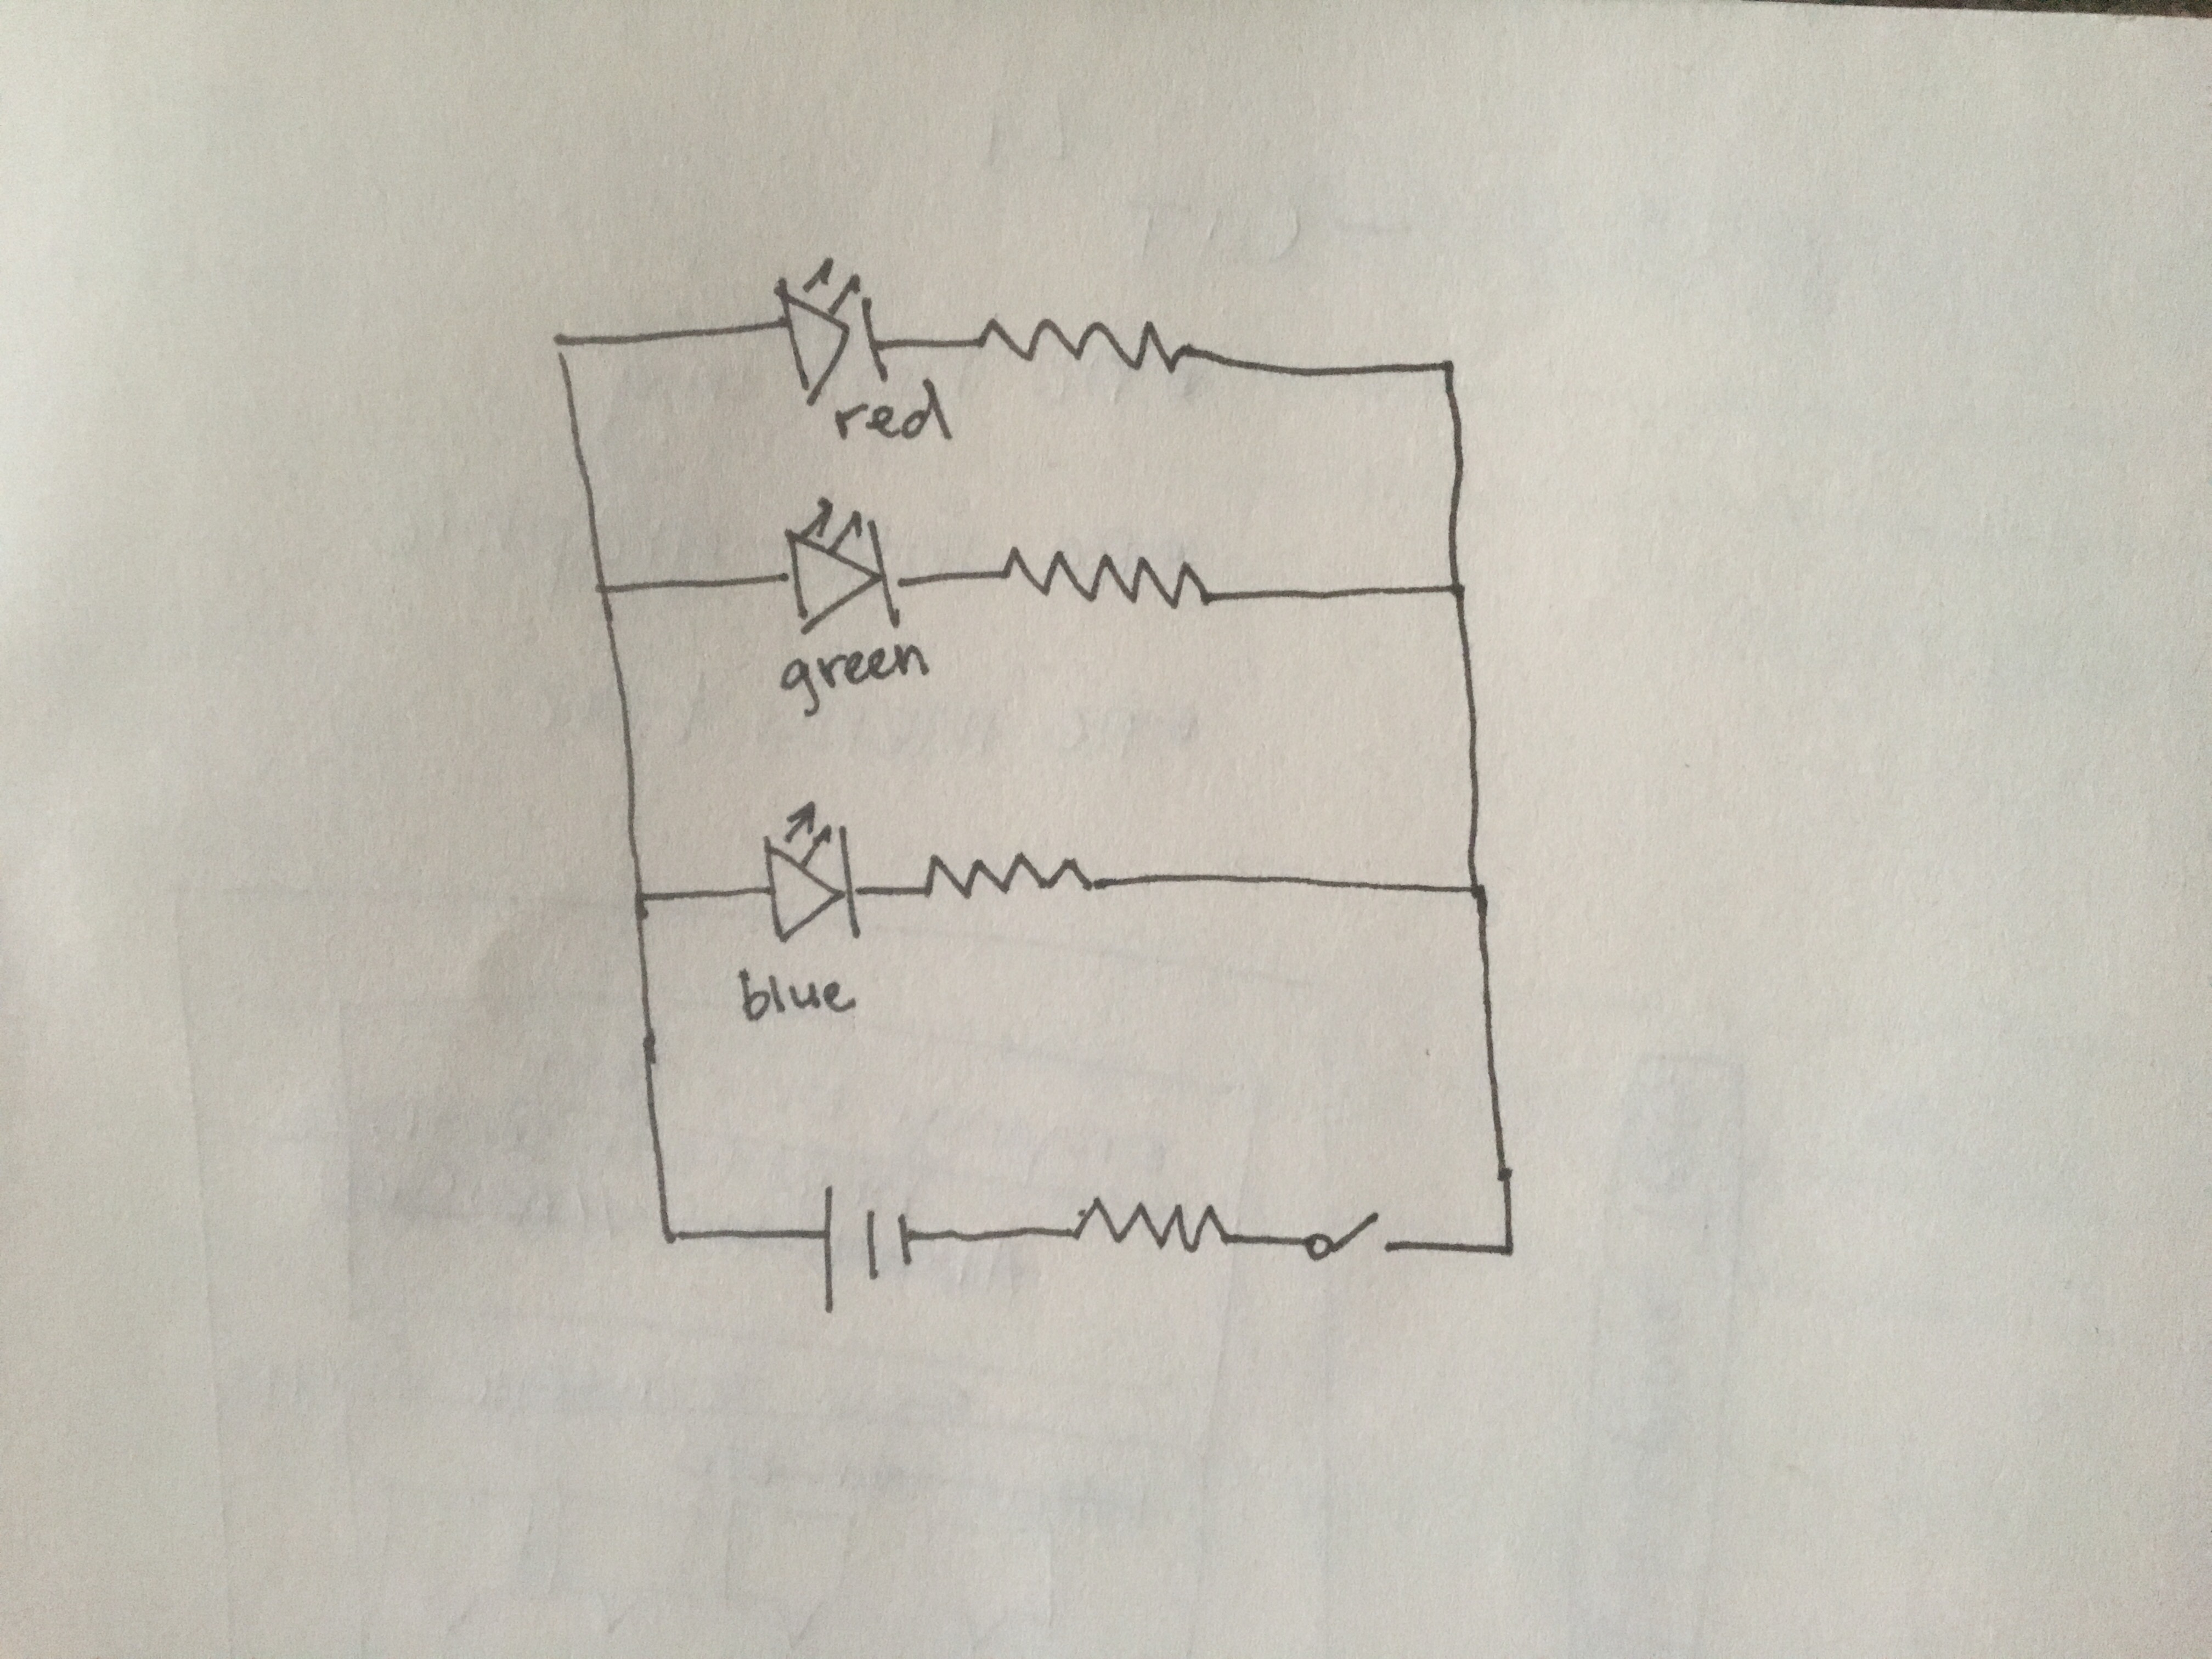 red
green
blue